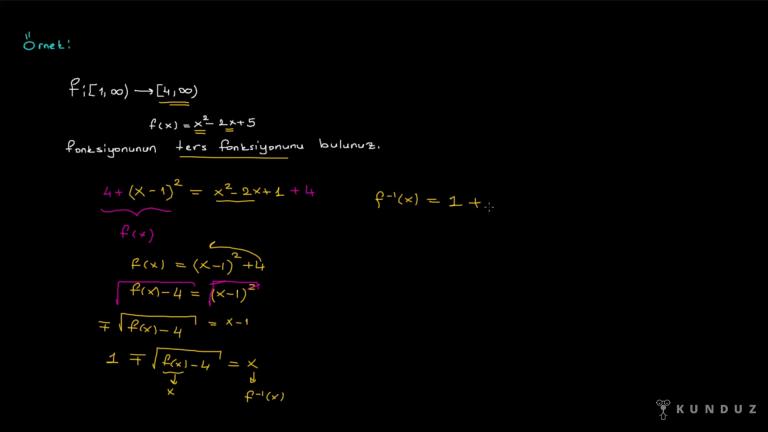 Örnek:
f: [1, ∞) → [4, ∞)
f(x) = x² - 2x + 5
fonksiyonunun ters fonksiyonunu bulunuz.
4 + (x - 1)² = x² - 2x + 1 + 4
f(x)
f(x) = (x - 1)² + 4
√(f(x) - 4) = √(x - 1)²
∓ √(f(x) - 4) = x - 1
1 ∓ √(f(x) - 4) = x
x f⁻¹(x)
f⁻¹(x) = 1 +
KUNDUZ